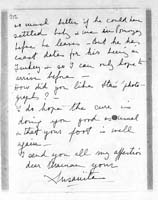 so much better if he could have
settled July &
before he leaves – but he has
exact dates for his being in
Turkey – so I can only hope to
arrive before –
How did you like Stan' photo-
graph?
I do hope the cure is
doing you good as usual
& that your foot is well
again –
I send you all my affection
dear
yours
Susanita